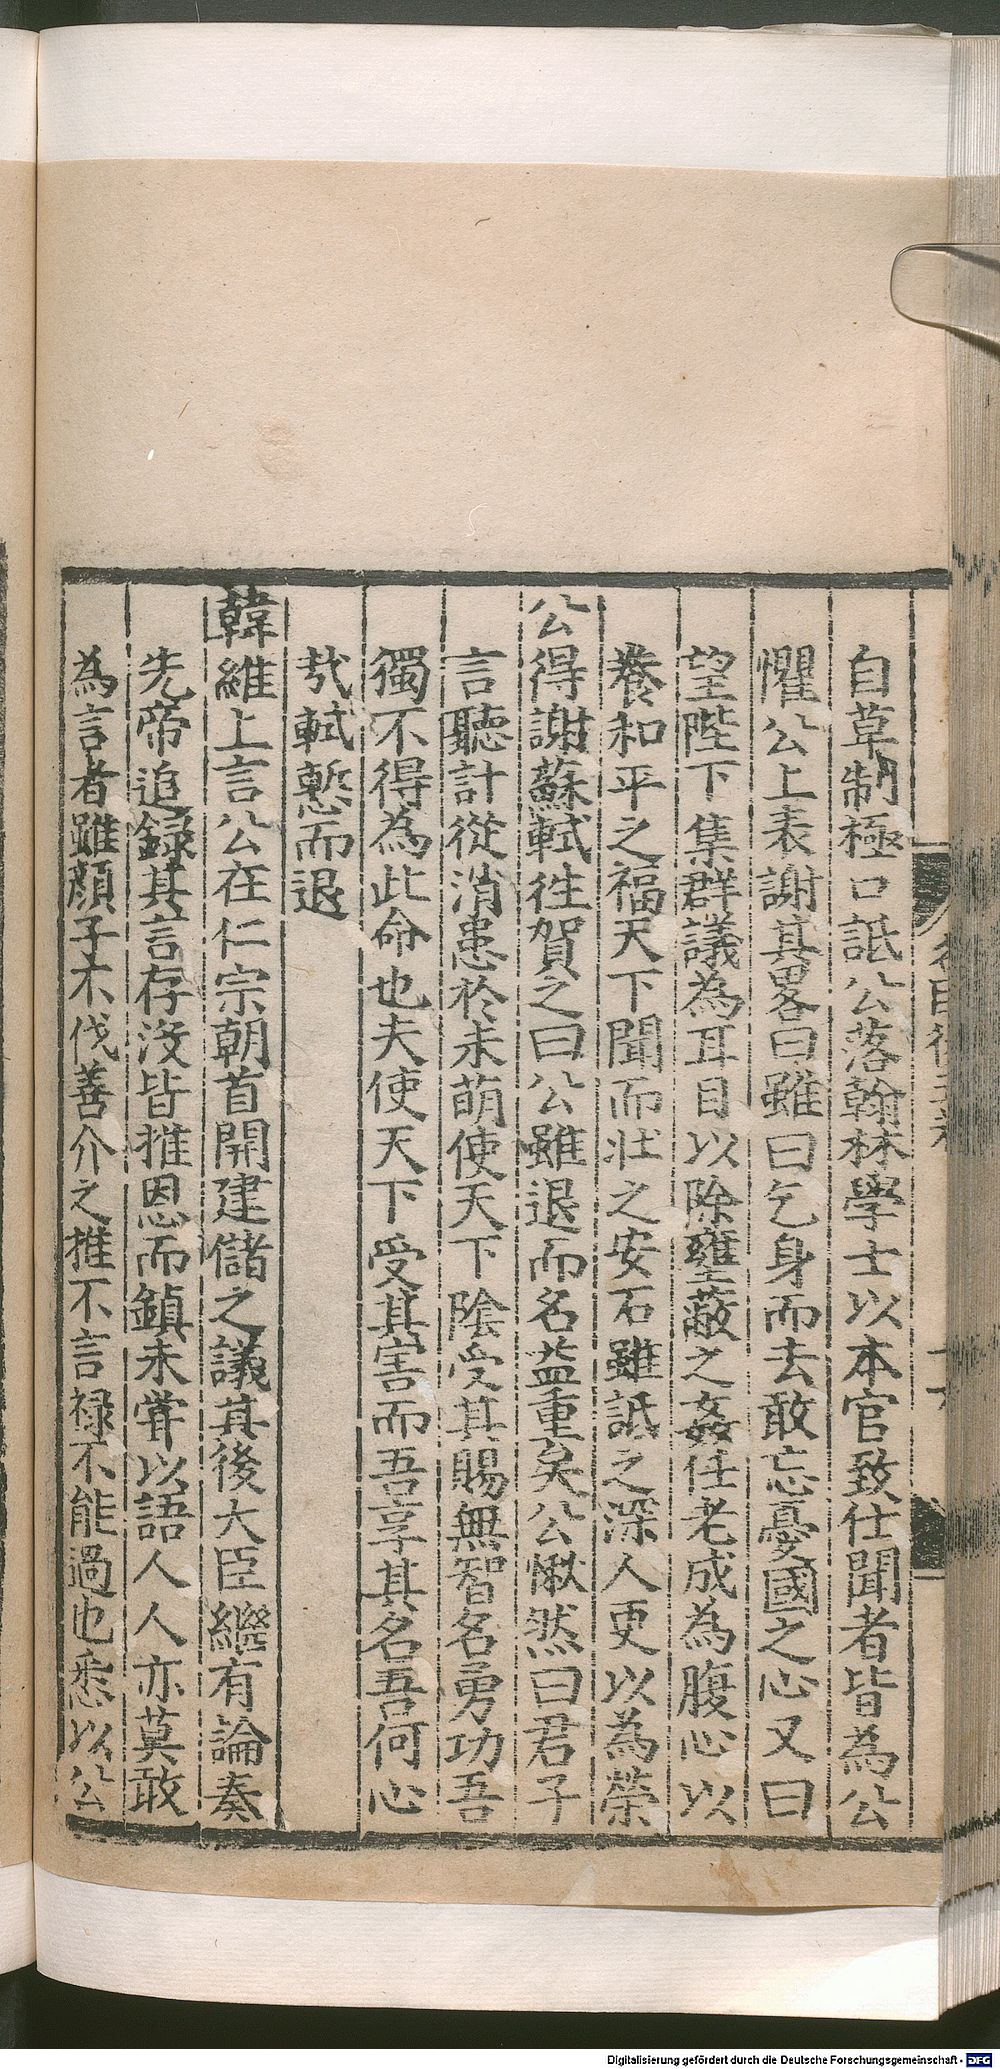 自草制極口詆公落翰林學士以本官致仕聞者皆為公
懼公上表謝其畧曰雖曰乞身而去敢忘憂國之心又曰
望陛下集群議為耳目以除壅蔽之姦任老成為腹心以
養和平之福天下聞而壯之安石雖詆之深人更以為榮
公得謝蘇軾徃賀之曰公雖退而名益重矣公愀然曰君子
言聽計從消患於未萌使天下陰受其賜無智名勇功吾
獨不得為此命也夫使天下受其害而吾享其名吾何心
㢤軾慙而退
韓維上言公在仁宗朝首開建儲之議其後大臣繼有論奏
先帝追録其言存沒皆推恩而鎮未甞以語人人亦莫敢
為言者雖顔子不伐善介之推不言禄不能過也悉以公
Digitalisierung gefördert durch die Deutsche Forschungsgemeinschaft - DFG